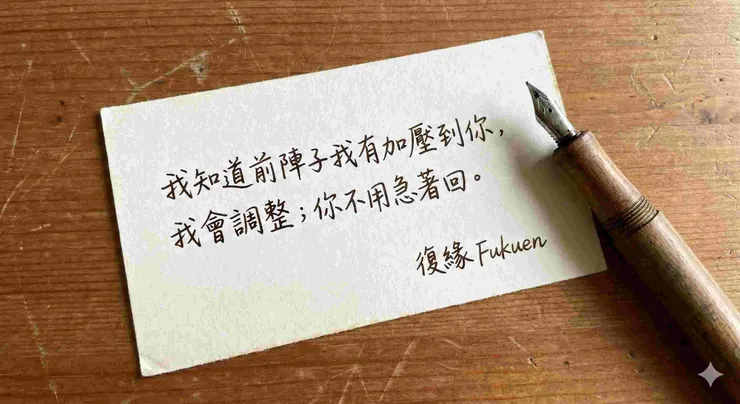 我知道前陣子我有加壓到你，
我會調整；你不用急著回。
復緣 Fukuen